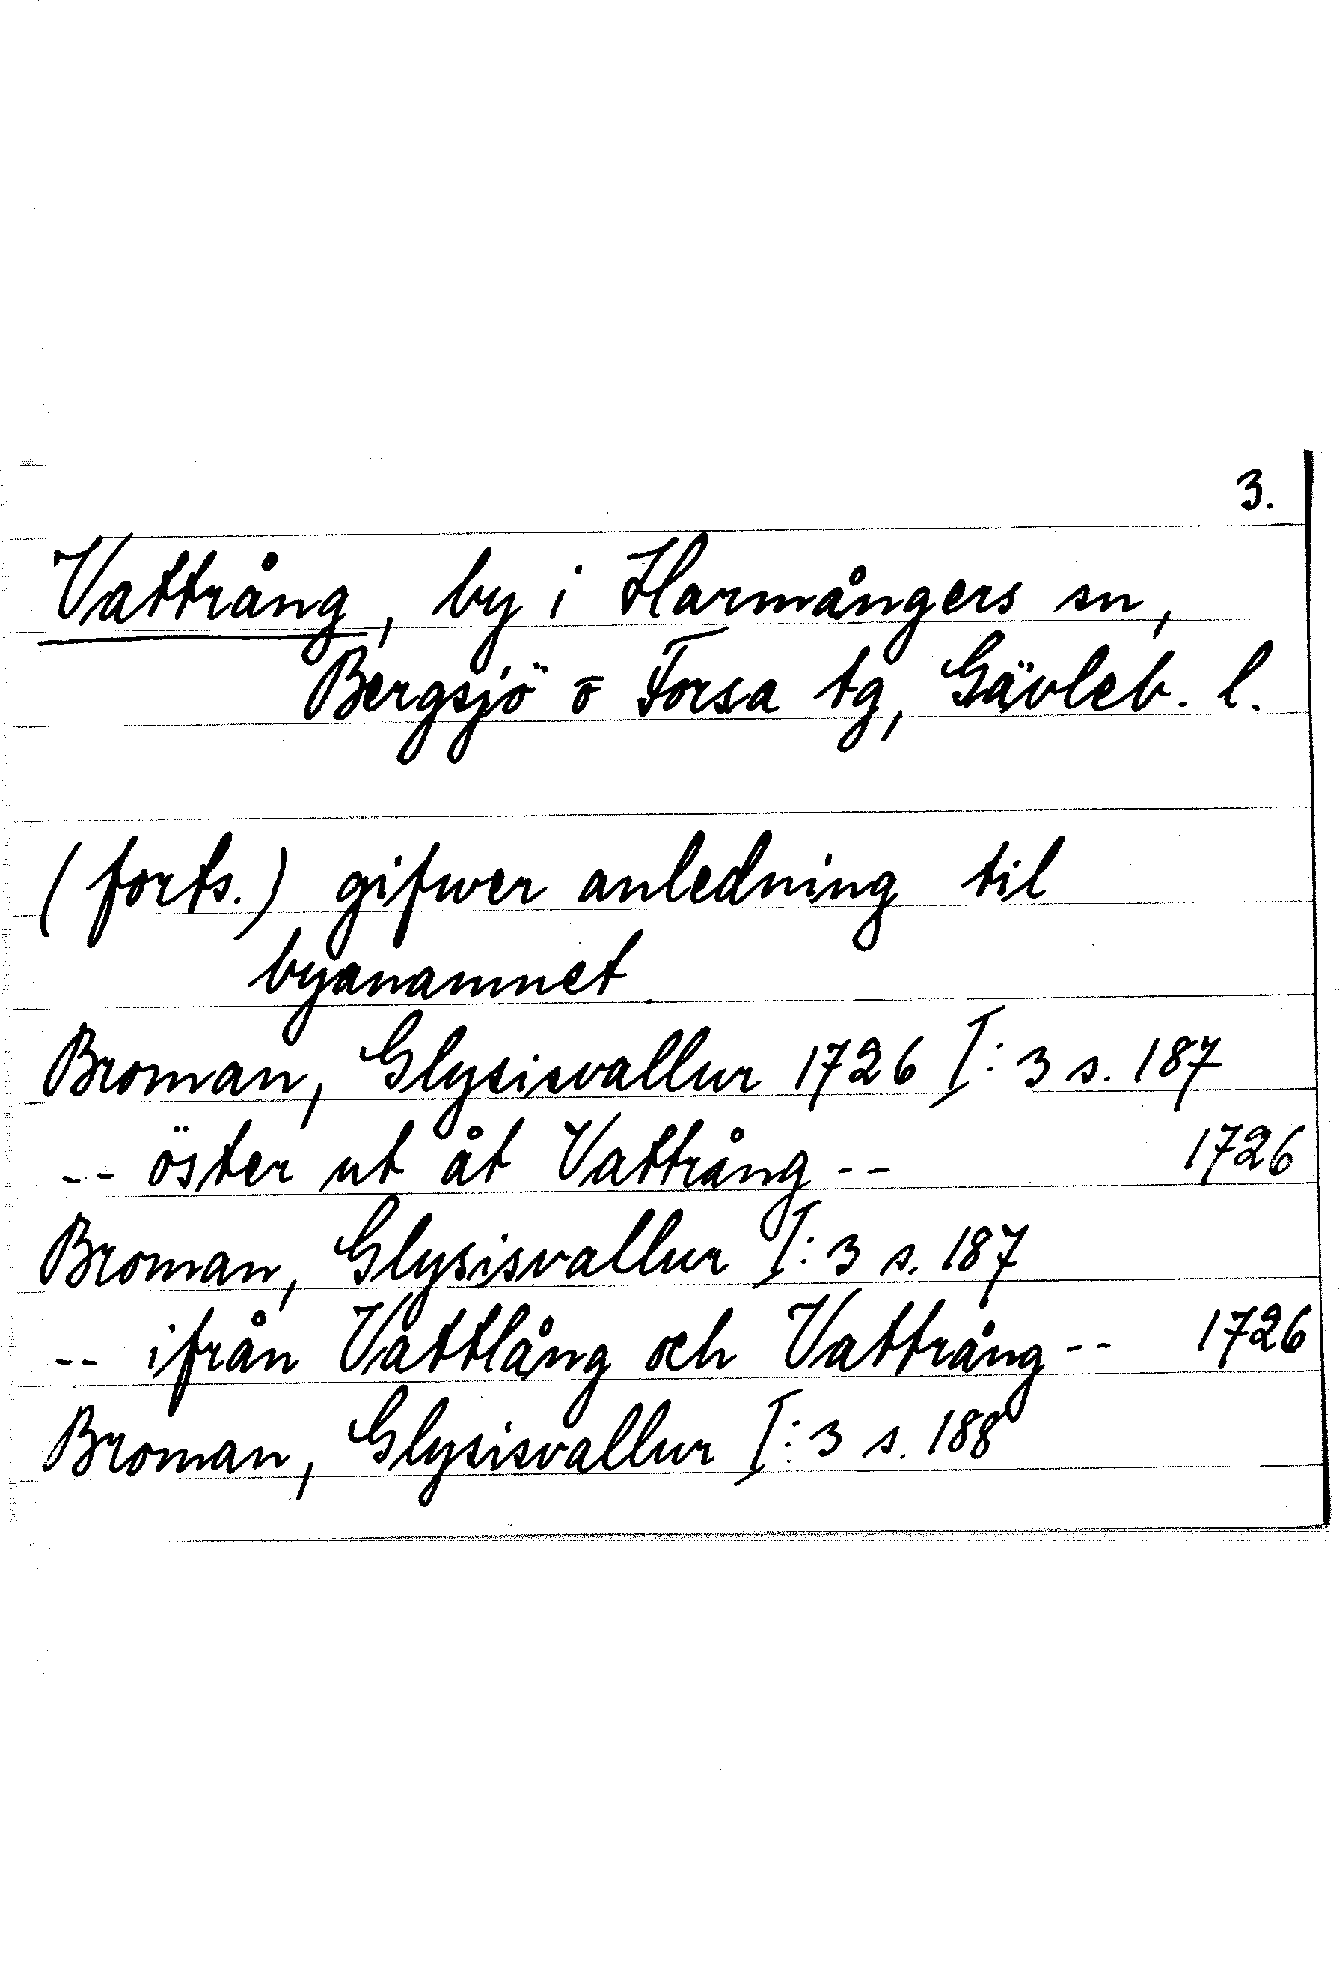 3.
Vattrång, by i Harmångers sn,
Bergsjö o Forsa tg, Gävleb. l.
(forts.) gifwer anledning til
byanamnet
Broman, Glysisvallur 1726 I:3 s. 187
-- öster ut åt Vattrång -- 1726
Broman, Glysisvallur I:3 s. 187
-- ifrån Vattlång och Vattrång -- 1726
Broman, Glysisvallur I:3 s. 188